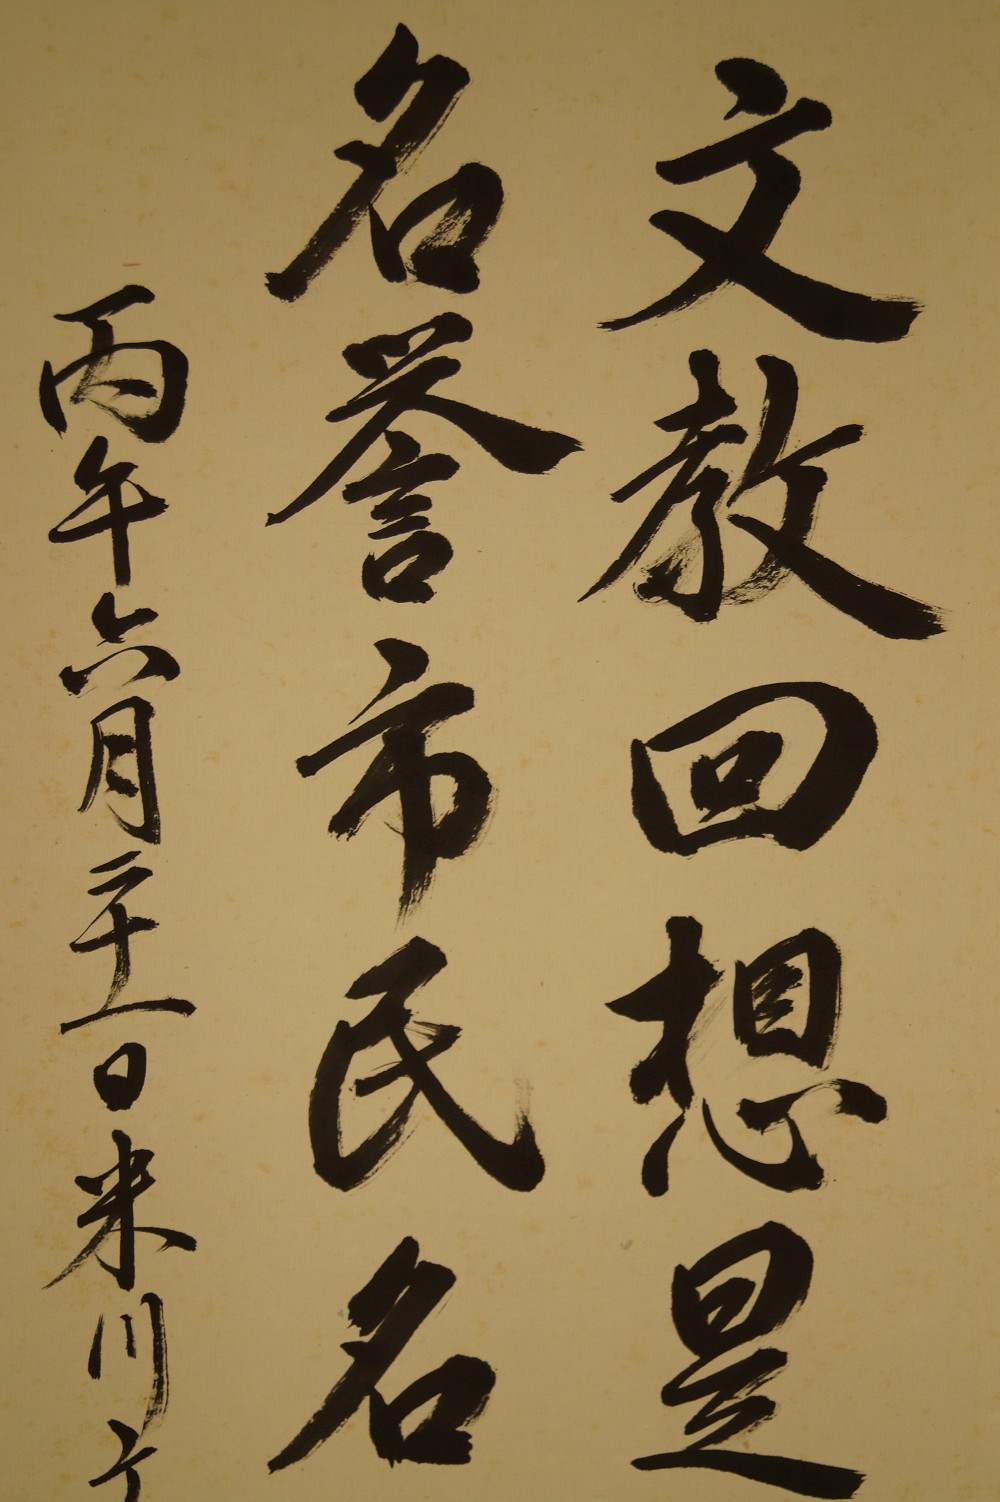 文教回想是
名誉市民名
丙午六月二十一日米川